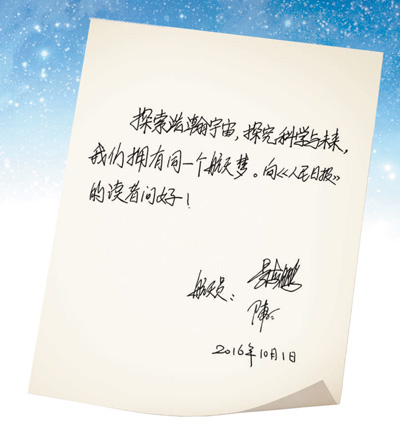 探索浩瀚宇宙,探究科学与未来,
我们拥有同一个航天梦。向《人民日报》
的读者问好!
航天员:景海鹏
陈冬
2016年10月1日